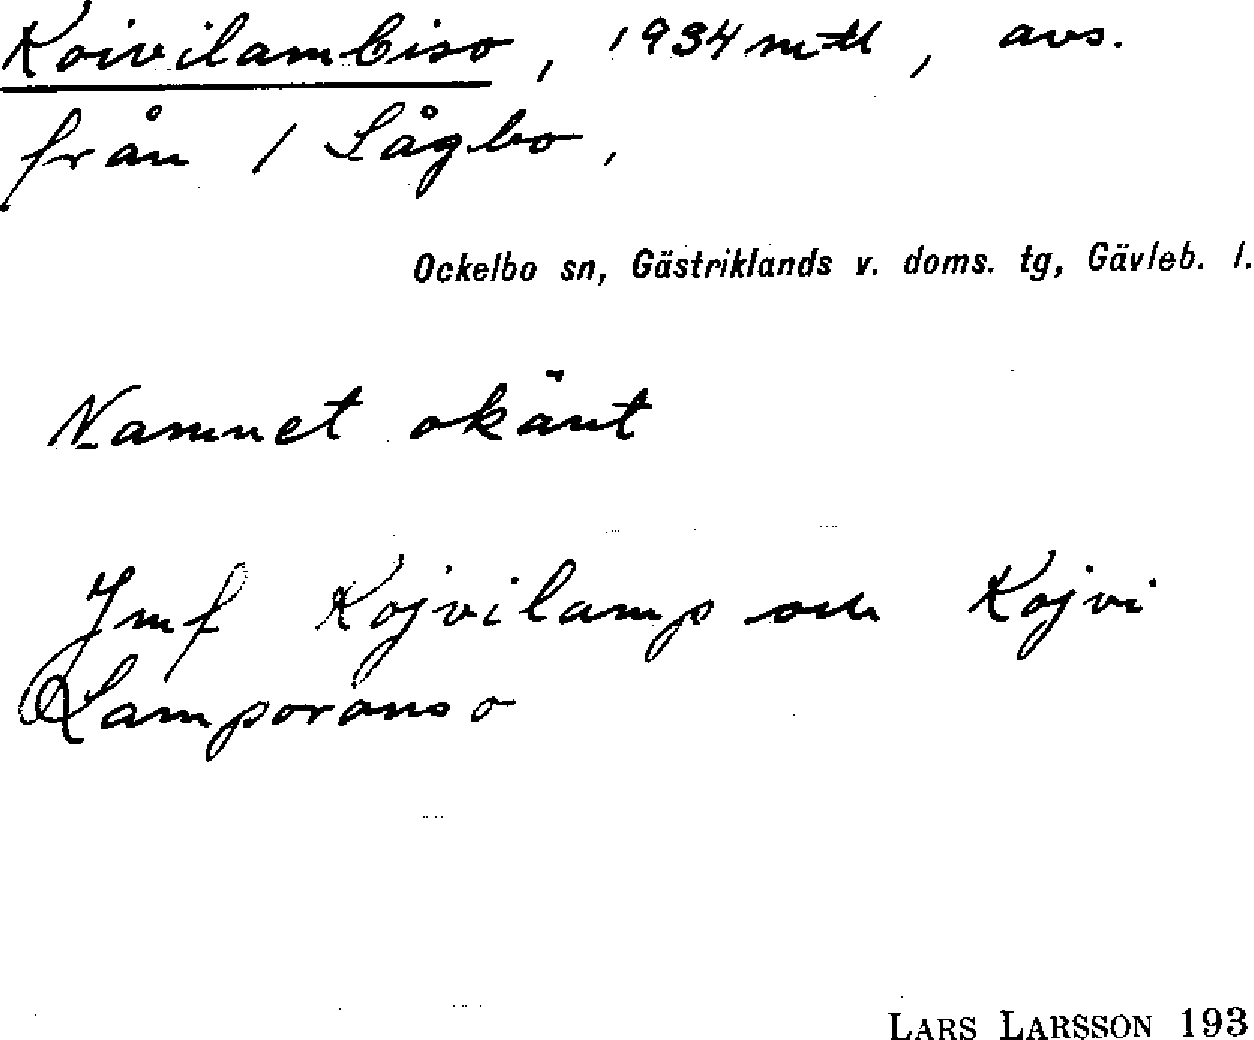 Koivilambiso, 1934 mtl, avs.
från 1 Lågbo,
Ockelbo sn, Gästriklands v. doms. tg, Gävleb. l.
Namnet okänt
Jmf Kojvilamp och Kojvi
Lamporonso
LARS LARSSON 193